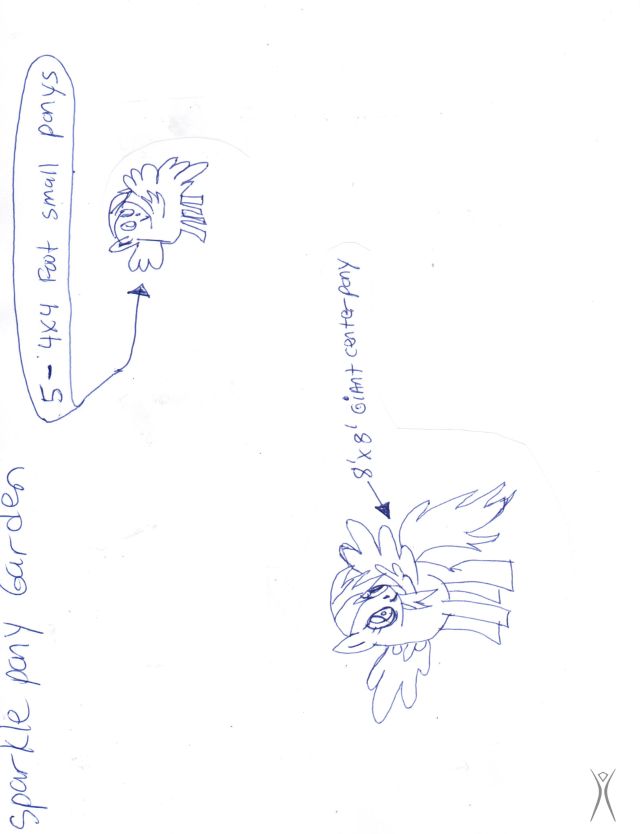 Sparkle pony Garden
5 - 4x4 Foot small ponys
8'x8' GiANt center pony